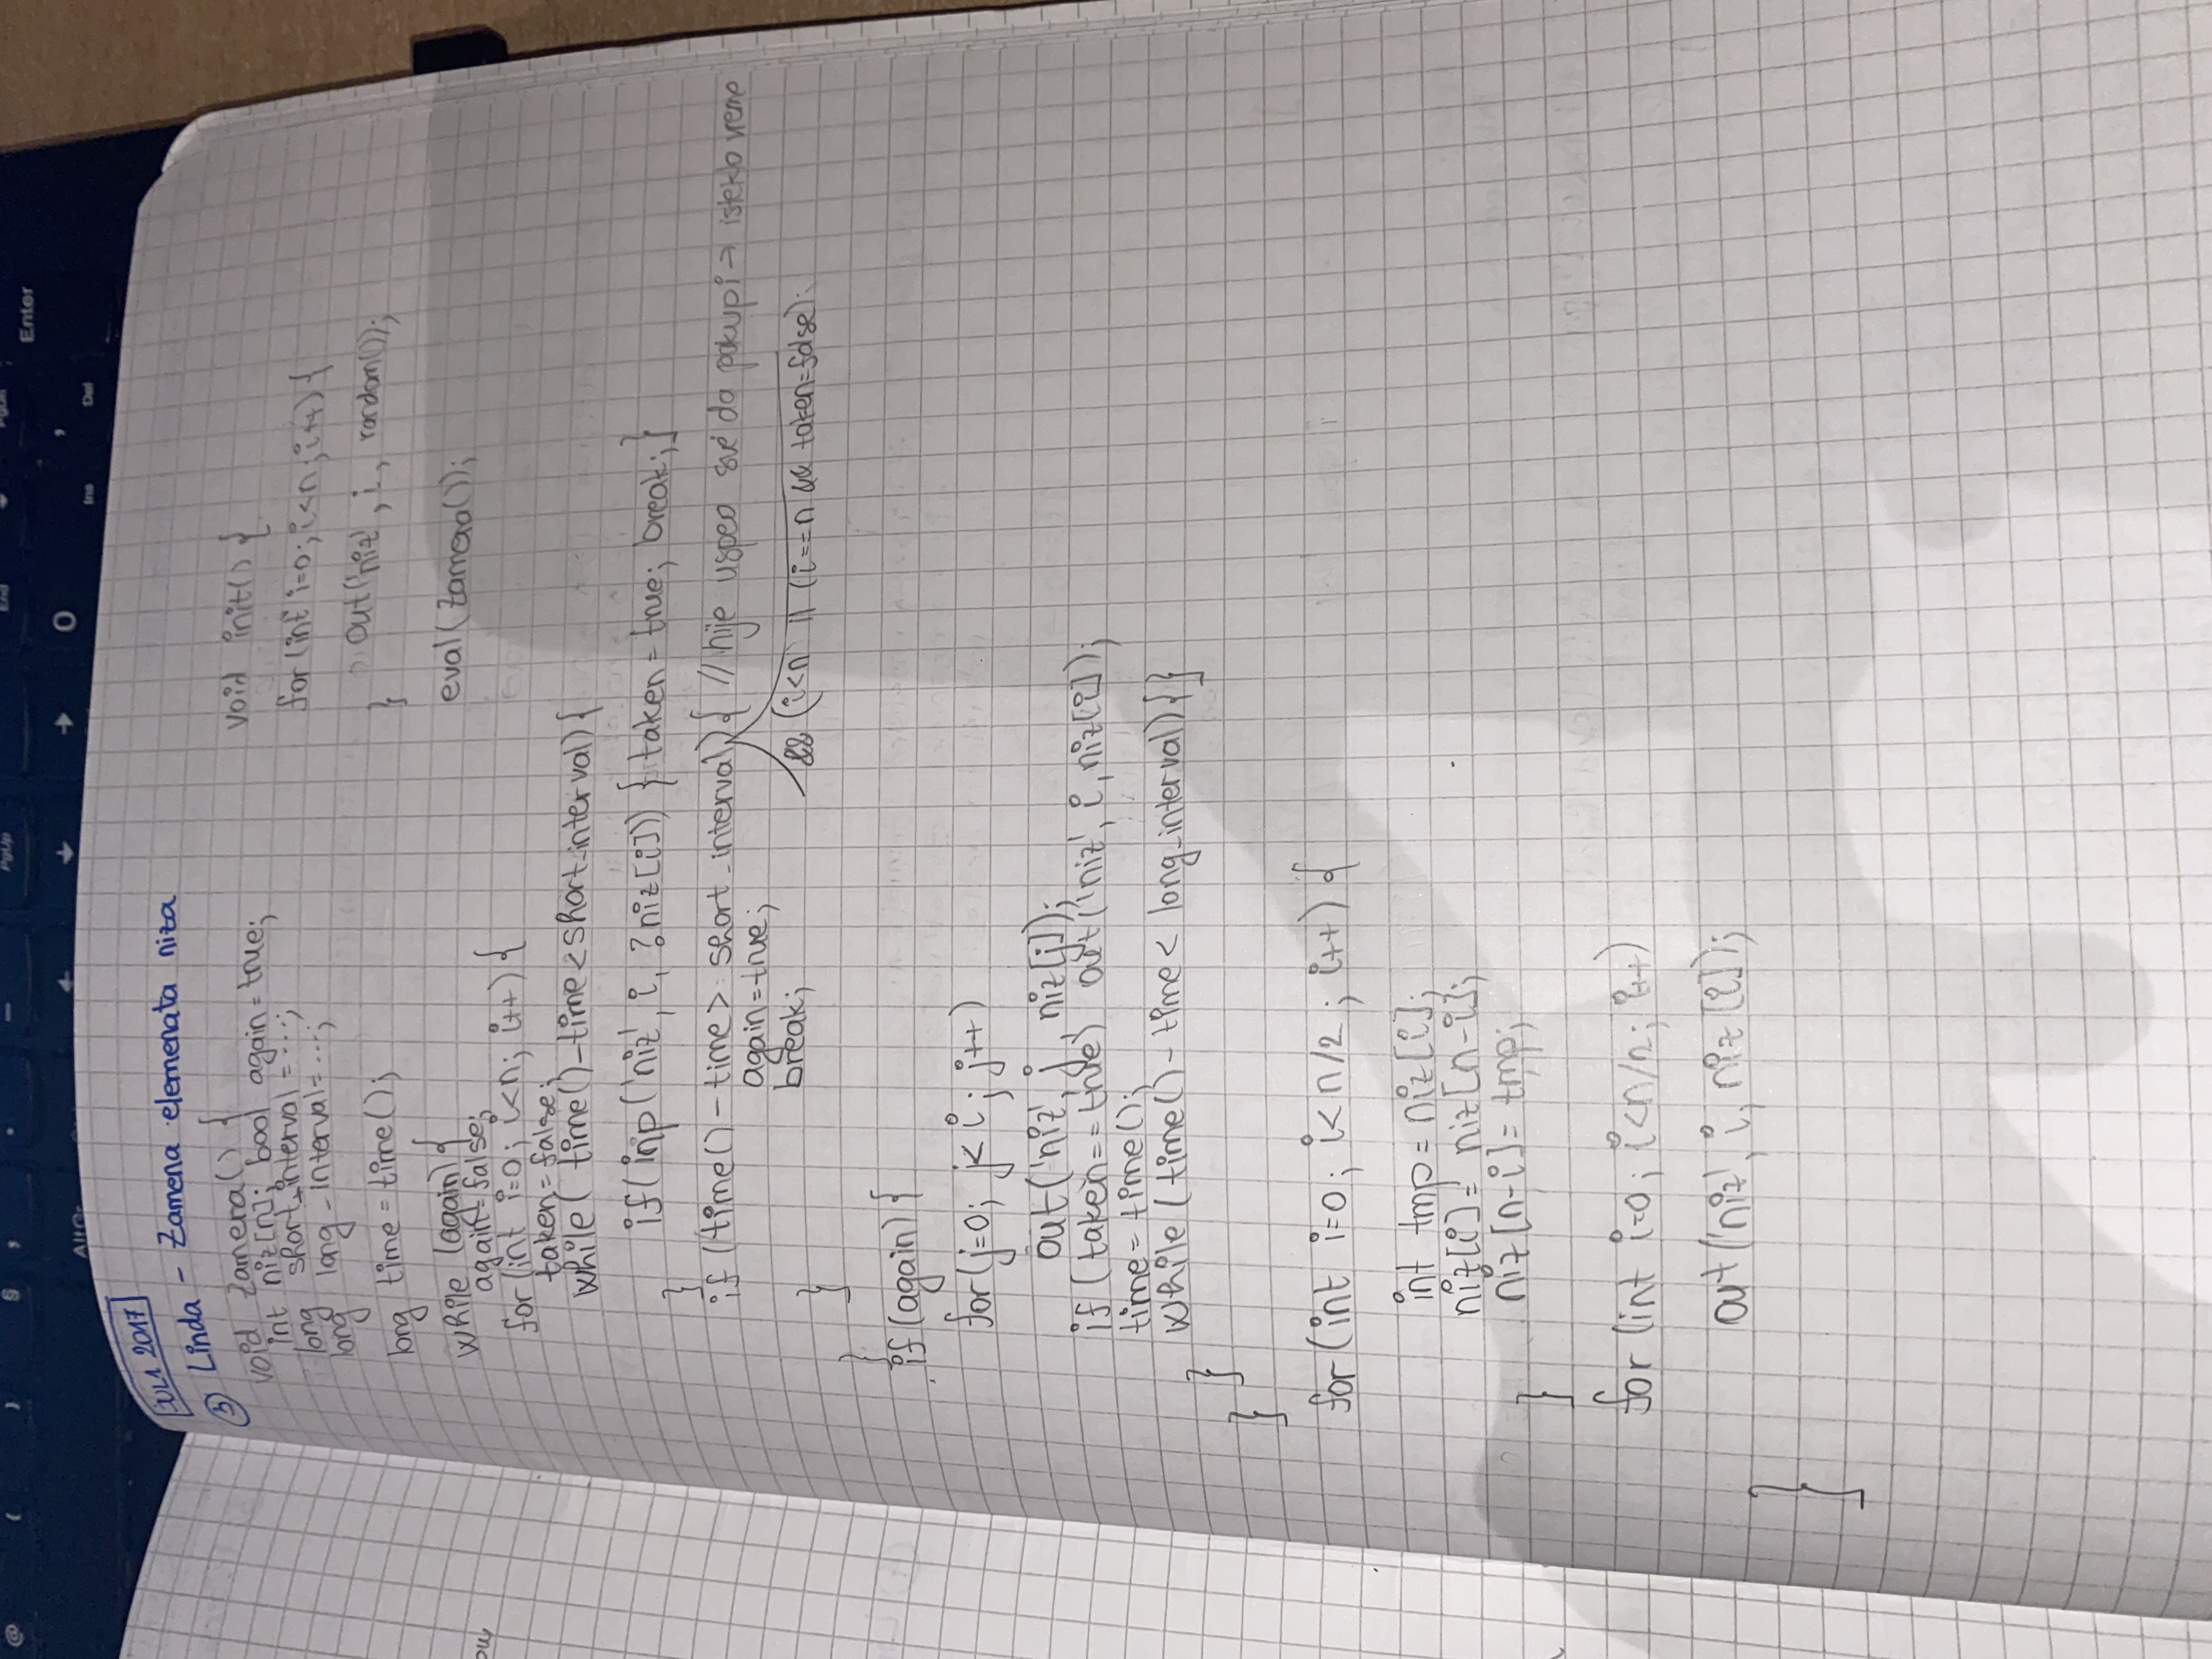 @ ( ) § ; . - PgUp End PgDn
Enter
AltGr ← ↓ → 0 , Ins Del
JUL1 2017
③ Linda - Zamena elemenata niza
void zamena() {
int niz[n]; bool again = true;
long short_interval = ...;
long long_interval = ...;
long time = time();
while (again) {
again = false;
for (int i=0; i<n; i++) {
taken = false;
while ( time() - time < short_interval) {
if (inp ('niz', i, ?niz[i])) { taken = true; break; }
}
if (time() - time > short_interval) { // nije uspeo sve da pokupi → isteklo vreme
again = true;
break;
&& (i<n || (i==n && taken=false);
}
}
if (again) {
for (j=0; j< i; j++)
out('niz', j, niz[j]);
if (taken == true) out ('niz', i, niz[i]);
time = time();
while (time() - time < long_interval) {}
}
}
for (int i=0; i< n/2; i++) {
int tmp = niz[i];
niz[i] = niz[n-i];
niz[n-i] = tmp;
}
for (int i=0; i<n/2; i++)
out ('niz', i, niz[i]);
}
void init() {
for (int i=0; i<n; i++) {
out('niz', i, random());
}
eval(zamena());